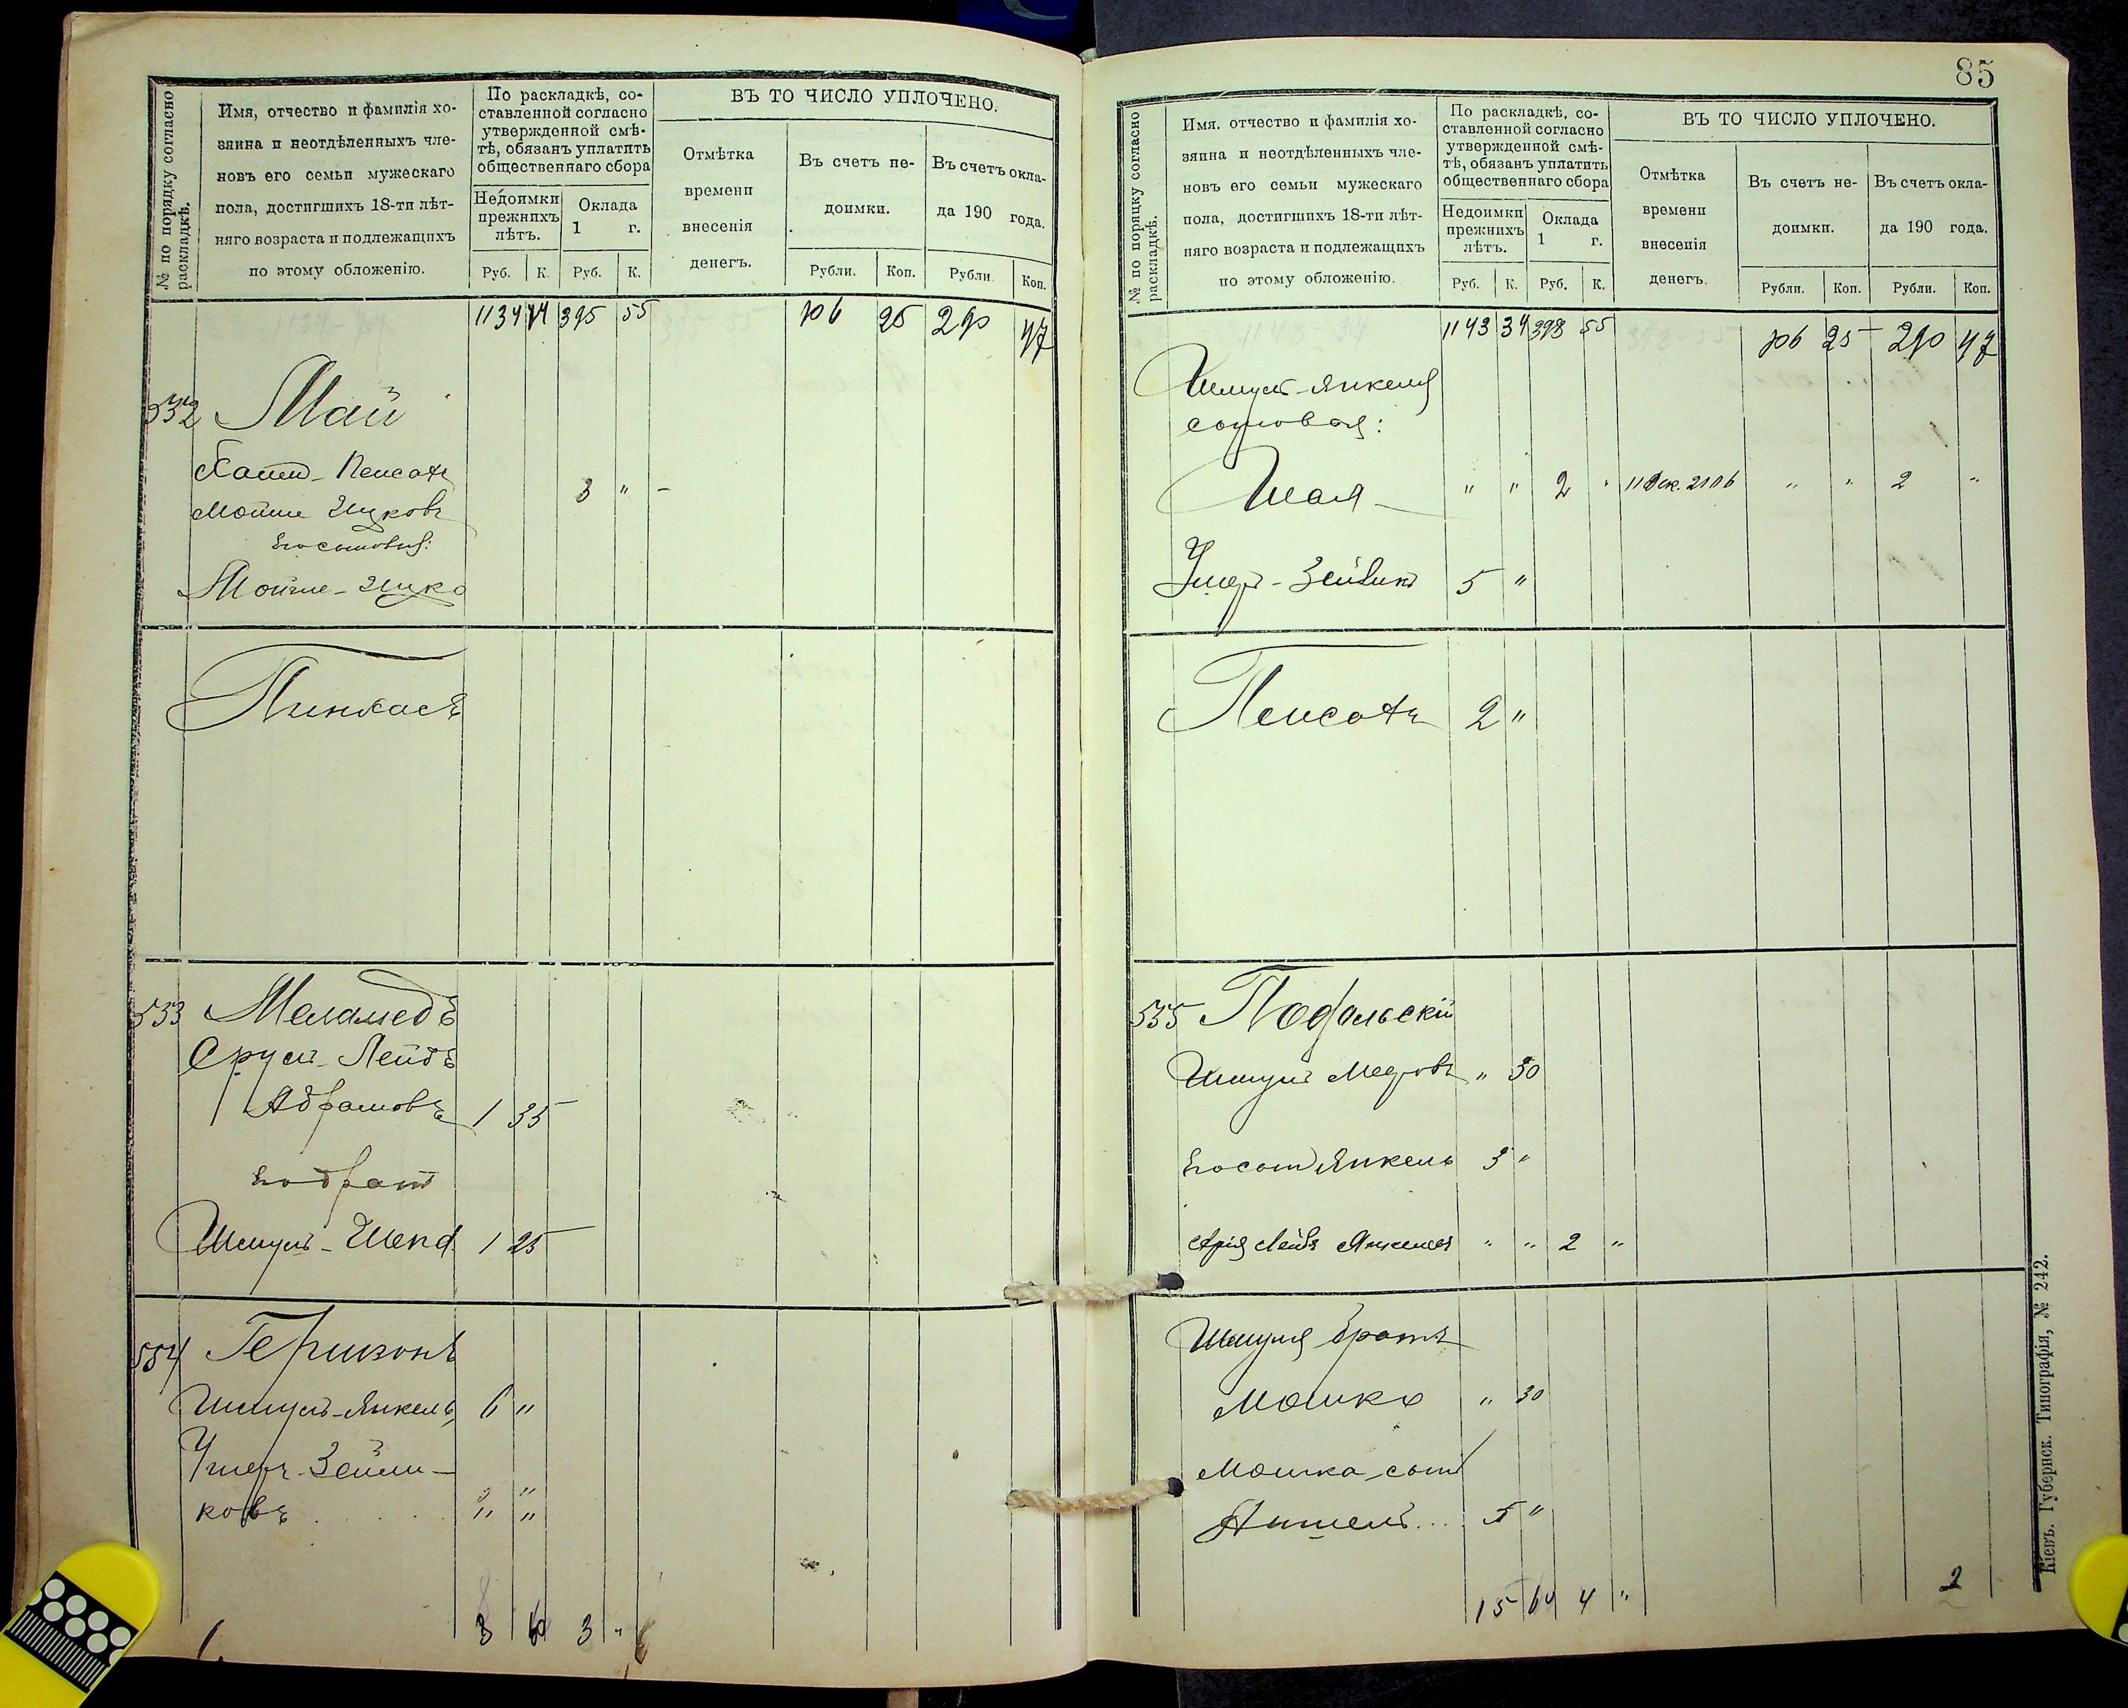 № по порядку согласно раскладкѣ.
Имя, отчество и фамилія хо-
зяина и неотдѣленныхъ чле-
новъ его семьи мужескаго
пола, достигшихъ 18-ти лѣт-
няго возраста и подлежащихъ
по этому обложенію.
По раскладкѣ, со-
ставленной согласно
утвержденной смѣ-
тѣ, обязанъ уплатить
общественнаго сбора
Недоимки
прежнихъ
лѣтъ.
Оклада
1 г.
Руб. К. Руб. К.
ВЪ ТО ЧИСЛО УПЛОЧЕНО.
Отмѣтка
времени
внесенія
денегъ.
Въ счетъ не-
доимки.
Рубли. Коп.
Въ счетъ окла-
да 190 года.
Рубли. Коп.
1134 74 395 55 106 25 290 47
532 Май
Хаим-Пейсахъ 3 " -
Мошко Ицковъ
Его сыновья:
Мойше-Ицко
Пинхасъ
533 Меламедъ
Сруль-Лейбъ
Абрамовъ 1 35
Его братъ
Шмуль- 1 25
534 Гершзонъ
Шмуль-Янкель 6 "
Ушеръ-Зейли-
ковъ " "
8 60 3 "
85
№ по порядку согласно раскладкѣ.
Имя, отчество и фамилія хо-
зяина и неотдѣленныхъ чле-
новъ его семьи мужескаго
пола, достигшихъ 18-ти лѣт-
няго возраста и подлежащихъ
по этому обложенію.
По раскладкѣ, со-
ставленной согласно
утвержденной смѣ-
тѣ, обязанъ уплатить
общественнаго сбора
Недоимки
прежнихъ
лѣтъ.
Оклада
1 г.
Руб. К. Руб. К.
ВЪ ТО ЧИСЛО УПЛОЧЕНО.
Отмѣтка
времени
внесенія
денегъ.
Въ счетъ не-
доимки.
Рубли. Коп.
Въ счетъ окла-
да 190 года.
Рубли. Коп.
1143 34 398 55 106 25 290 47
Шмуль-Янкеля
сыновья:
Шая - " " 2 " 11 Дек. 2106 " " 2 "
Ушеръ-Зейликъ 5 "
Пейсахъ 2 "
535 Подольскій
Шмуль Мееровъ " 30
Его сынъ Янкель 3 "
Арія Лейбъ Янкелев " " 2 "
Шмуля братъ
Мошко " 30
Мошка сынъ
Аншель... 5 "
15 60 4 " 2
Кіевъ. Губернск. Типографія, № 242.